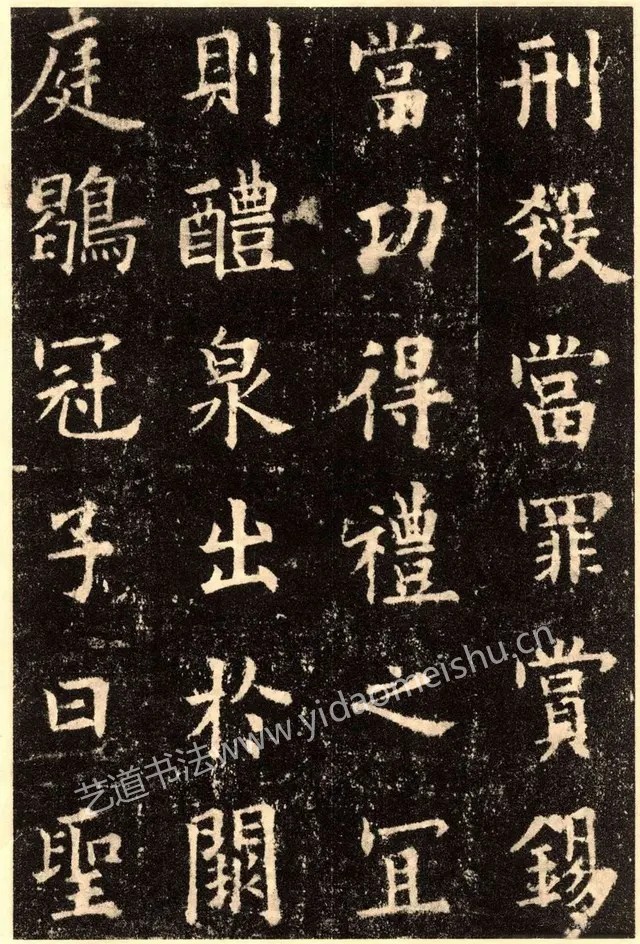 刑殺當罪賞錫
當功得禮之冝
則醴泉出於闕
庭鶡冠子曰聖
艺道书法www.yidaomeishu.cn